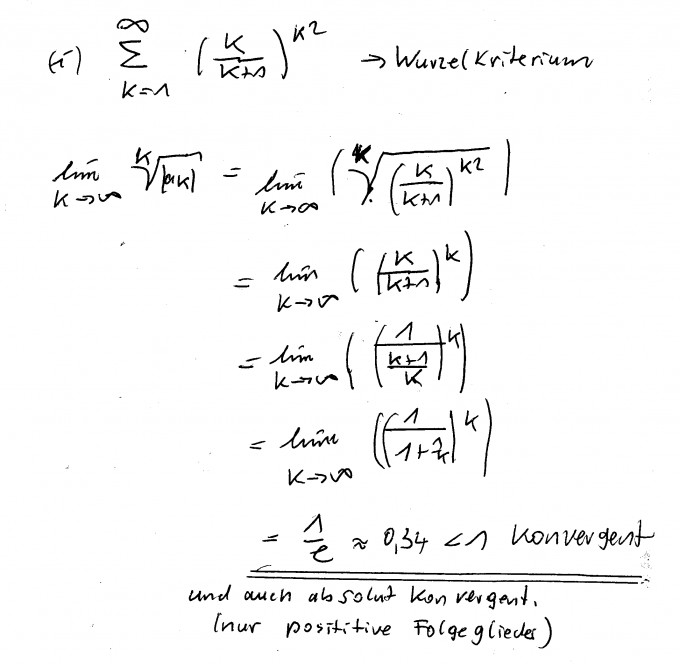 (i) ∑_{k=1}^{∞} (k/(k+1))^{k²} → Wurzelkriterium
lim_{k→∞} ᵏ√|a_k| = lim_{k→∞} (ᵏ√((k/(k+1))^{k²}))
= lim_{k→∞} ((k/(k+1))^k)
= lim_{k→∞} ((1/((k+1)/k))^k)
= lim_{k→∞} ((1/(1+1/k))^k)
= 1/e ≈ 0,34 < 1 konvergent
und auch absolut konvergent.
(nur posititive Folgeglieder)